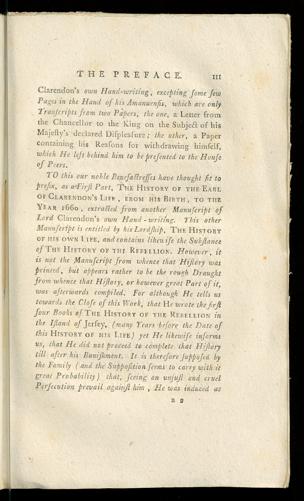 THE PREFACE. III
Clarendon's own Hand-writing, excepting ſome few
Pages in the Hand of his Amanuenſis, which are only
Tranſcripts from two Papers, the one, a Letter from
the Chancellor to the King on the Subject of his
Majeſty's declared Diſpleaſure; the other, a Paper
containing his Reaſons for withdrawing himſelf,
which He left behind him to be preſented to the Houſe
of Peers.
TO this our noble Benefactreſſes have thought fit to
prefix, as a Firſt Part, THE HISTORY OF THE EARL
OF CLARENDON'S LIFE, FROM HIS BIRTH, TO THE
YEAR 1660, extracted from another Manuſcript of
Lord Clarendon's own Hand-writing. This other
Manuſcript is entitled by his Lordſhip, THE HISTORY
OF HIS OWN LIFE, and contains likewiſe the Subſtance
of THE HISTORY OF THE REBELLION. However, it
is not the Manuſcript from whence that Hiſtory was
printed, but appears rather to be the rough Draught
from whence that Hiſtory, or however great Part of it,
was afterwards compiled. For although He tells us
towards the Cloſe of this Work, that He wrote the firſt
four Books of THE HISTORY OF THE REBELLION in
the Iſland of Jerſey, (many Years before the Date of
this HISTORY OF HIS LIFE) yet He likewiſe informs
us, that He did not proceed to complete that Hiſtory
till after his Baniſhment. It is therefore ſuppoſed by
the Family (and the Suppoſition ſeems to carry with it
great Probability) that, ſeeing an unjuſt and cruel
Perſecution prevail againſt him, He was induced as